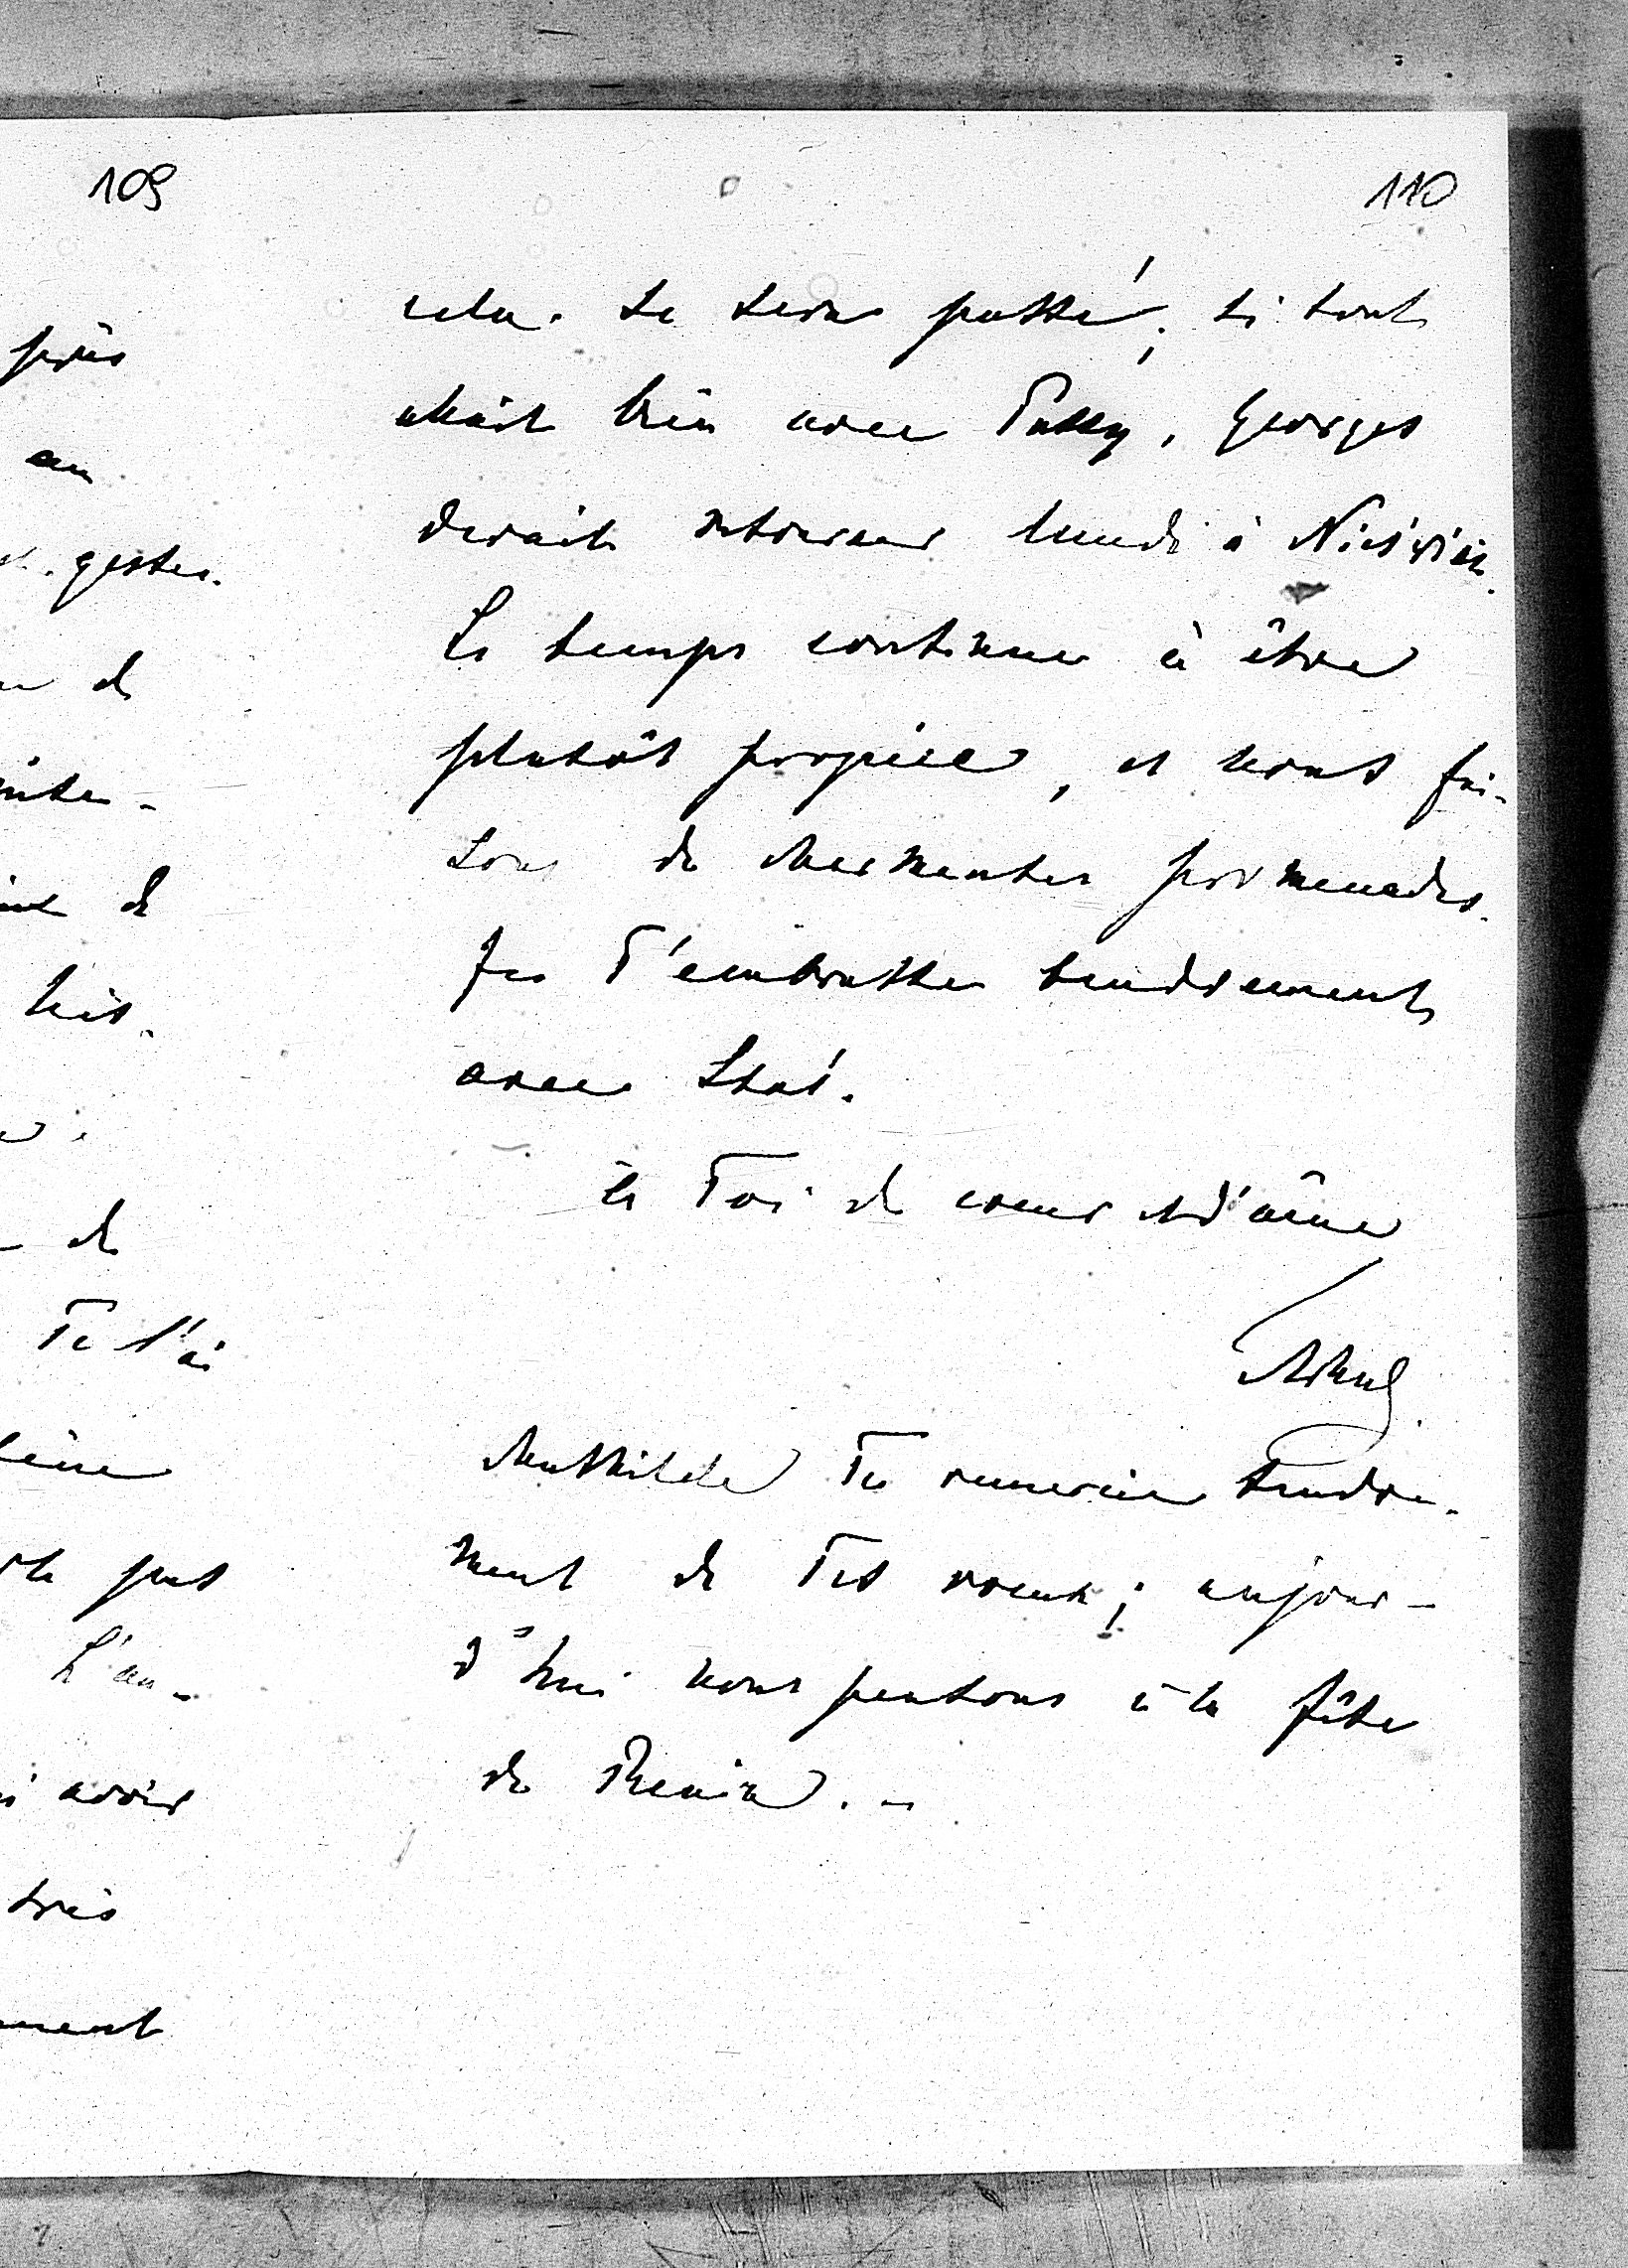 109
près
au
gestes.
de
de
de
Te l'ai
pas
L'an-
avoir
très
ment
110
cela se sera passé; si tout
était bien avec Tassy, Georges
devait retourner lundi à Nieśwież.
Le temps continue à être
plutôt propice, et nous fai-
sons de charmantes promenades.
Je T'embrasse tendrement
avec Staś.
à Toi de coeur et d'âme
Mathilde Te remercie tendre-
ment de Tes voeux; aujour-
d'hui nous pensons à la fête
de Renia.-